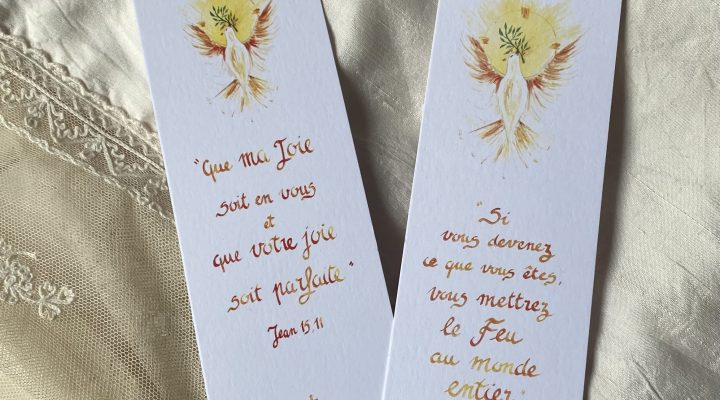 "Que ma Joie
soit en vous
et
que votre joie
soit parfaite"
Jean 15, 11
"Si
vous devenez
ce que vous êtes,
vous mettrez
le Feu
au monde
entier"